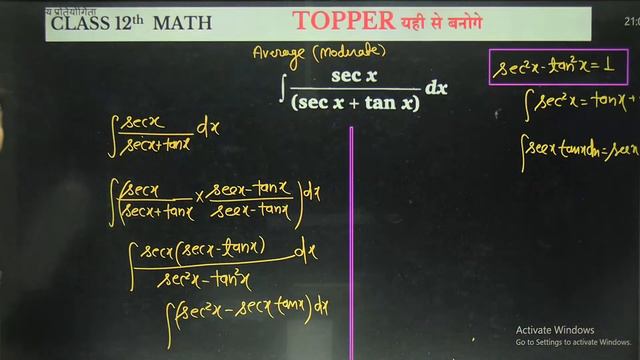 CLASS 12th MATH
TOPPER यही से बनोगे
21:0
Average (Moderate)
∫ sec x / (sec x + tan x) dx
sec²x - tan²x = 1
∫ sec²x = tanx +
∫ secx tanx dx = secx
∫ secx / secx+tanx dx
∫ (secx / (secx+tanx) × secx-tanx / secx-tanx) dx
∫ secx(secx-tanx) / sec²x - tan²x dx
∫ (sec²x - secx tanx) dx
Activate Windows
Go to Settings to activate Windows.